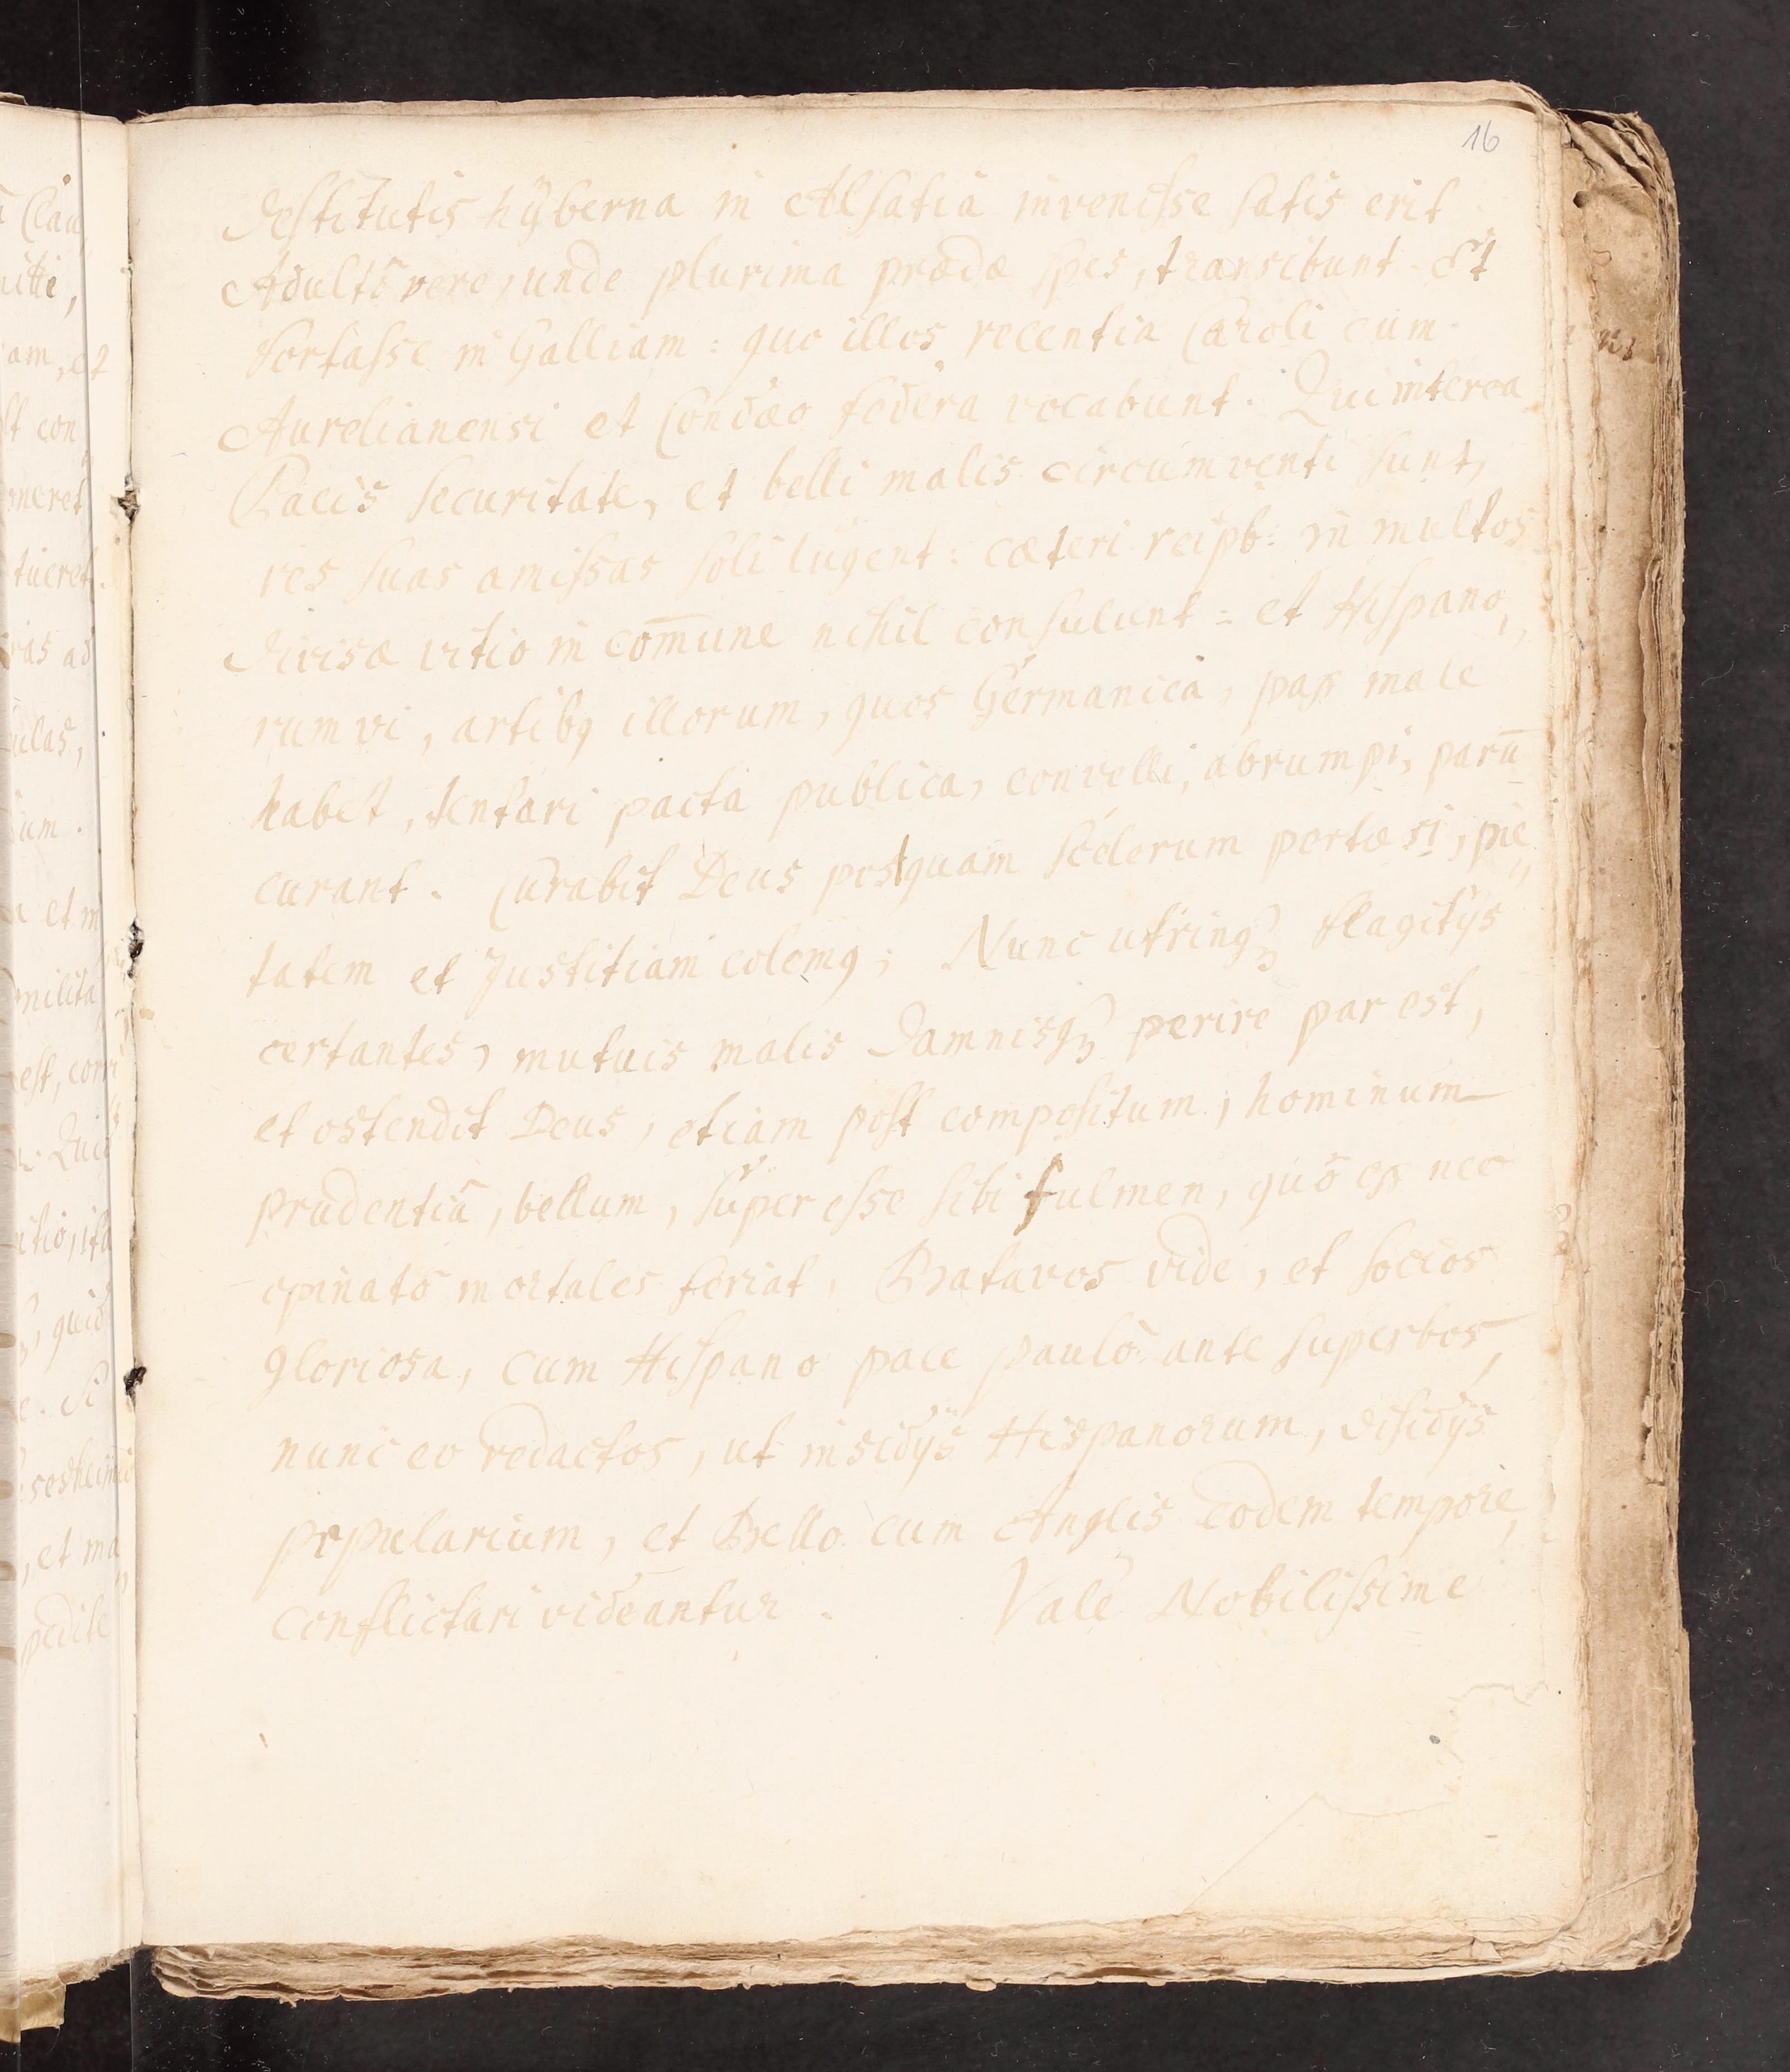 16
destitutis hÿberna in Alsatiâ invenisse satis erit
Adultô vere, unde plurima prædæ spes, transibunt. Et
fortasse in Galliam: quo illos recentia Caroli cum
Aurelianensi et Condæo fœdera vocabunt. Qui interea
Pacis securitate, et belli malis circumventi sunt,
res suas amissas soli lugent: cæteri reipb: in multos
divisæ vitio in com̄une nihil consulunt: et Hispano,,
rum vi, artibq illorum, quos Germanica, pax male
habet, tentari pacta publica, convelli, abrumpi, parū
curant. Curabit Deus postquam scelerum pertæsi, pie,,
tatem et Justitiam colemq; Nunc utrinqꝫ flagitÿs
certantes, mutuis malis damnisqꝫ perire par est,
et ostendit Deus, etiam post compositum, hominum
prudentiâ, bellum, superesse sibi fulmen, quô ex nec
opinatô mortales feriat, Batavos vide, et socios
gloriosa, cum Hispano pace paulò ante superbos,
nunc eo redactos, ut insidÿs Hispanorum, disidÿs
popularium, et Bello cum Anglis eodem tempore,
conflictari videantur. Vale Nobilissime